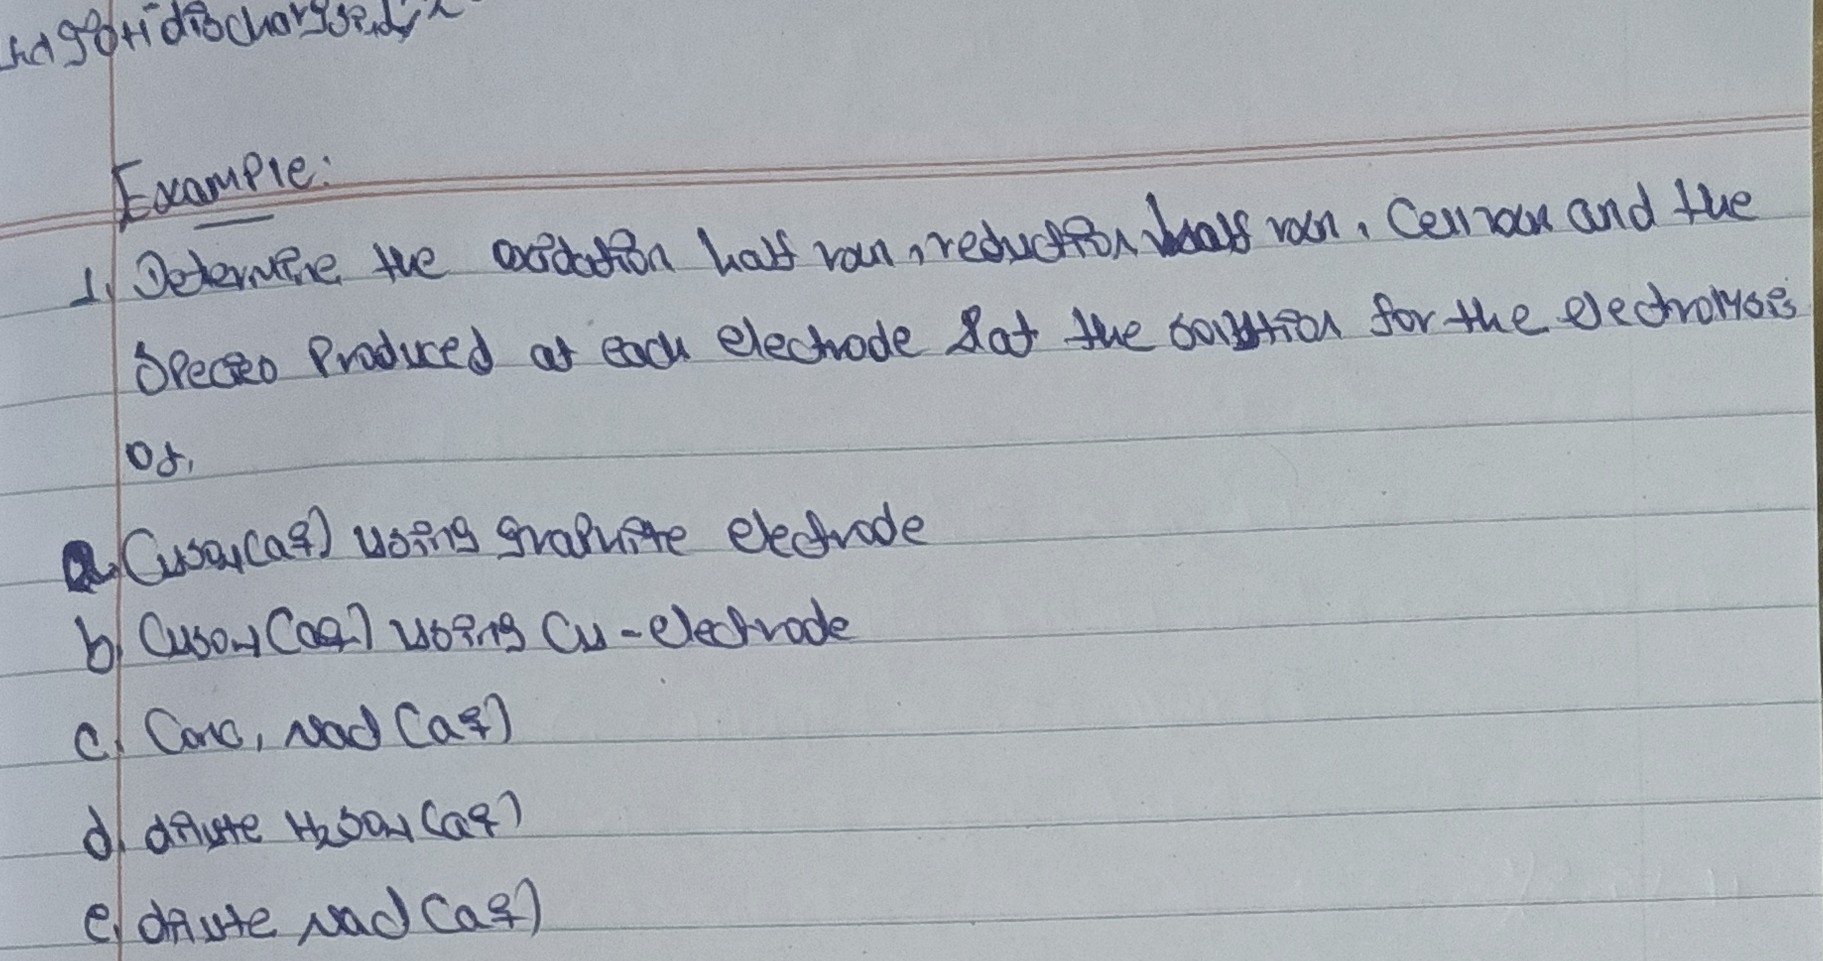 discharged
Example:
1, Determine the oxidation half rxn, reduction half rxn, Cell rxn and the
Species Produced at each electrode & at the solution for the electrolysis
of,
a. CuSO4(aq) using graphite electrode
b, CuSO4(aq) using Cu-electrode
c, Conc, NaCl (aq)
d, dilute H2SO4 (aq)
e, dilute NaCl (aq)